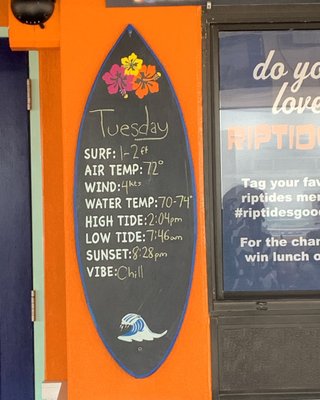 Tuesday
SURF: 1-2ft
AIR TEMP: 72°
WIND: 4kts
WATER TEMP: 70-74°
HIGH TIDE: 2:04pm
LOW TIDE: 7:46am
SUNSET: 8:28pm
VIBE: Chill
do yo
love
RIPTID
Tag your fav
riptides me
#riptidesgoo
For the chan
win lunch o